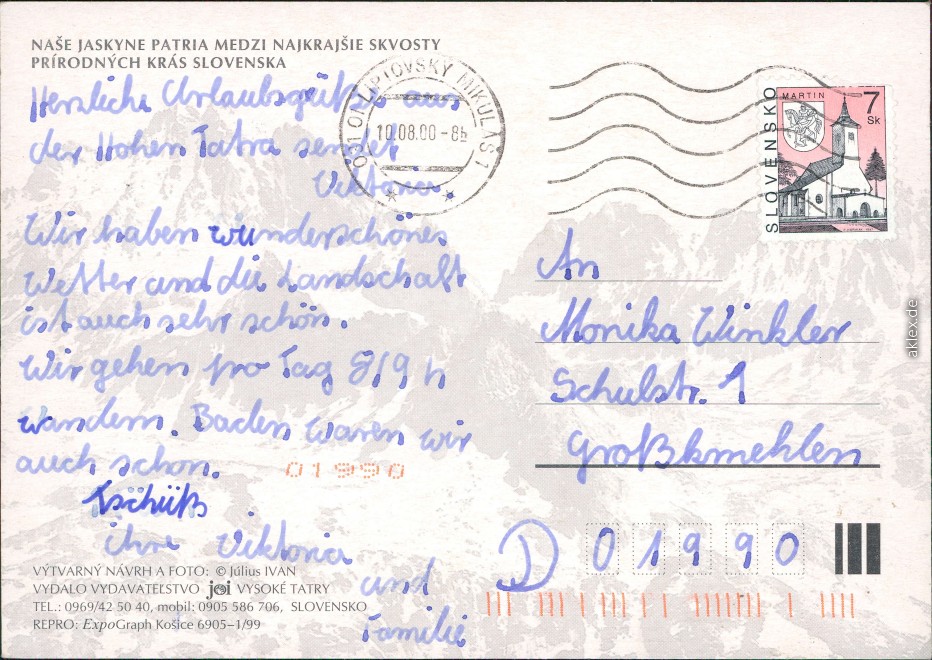 NAŠE JASKYNE PATRIA MEDZI NAJKRAJŠIE SKVOSTY
PRÍRODNÝCH KRÁS SLOVENSKA
Herzliche Urlaubsgrüße aus
der Hohen Tatra sendet
Viktoria
Wir haben wunderschönes
Wetter und die Landschaft
ist auch sehr schön.
Wir gehen pro Tag 8/9 h
wandern. Baden waren wir
auch schon.
Tschüß
ihre Viktoria
und
Familie
01990
LIPTOVSKÝ MIKULÁŠ 1
10.08.00-8
SLOVENSKO
MARTIN
7
Sk
An
Monika Winkler
Schulstr. 1
Großkmehlen
D 01990
VÝTVARNÝ NÁVRH A FOTO: © Július IVAN
VYDALO VYDAVATEĽSTVO joi VYSOKÉ TATRY
TEL.: 0969/42 50 40, mobil: 0905 586 706, SLOVENSKO
REPRO: ExpoGraph Košice 6905–1/99
aklex.de